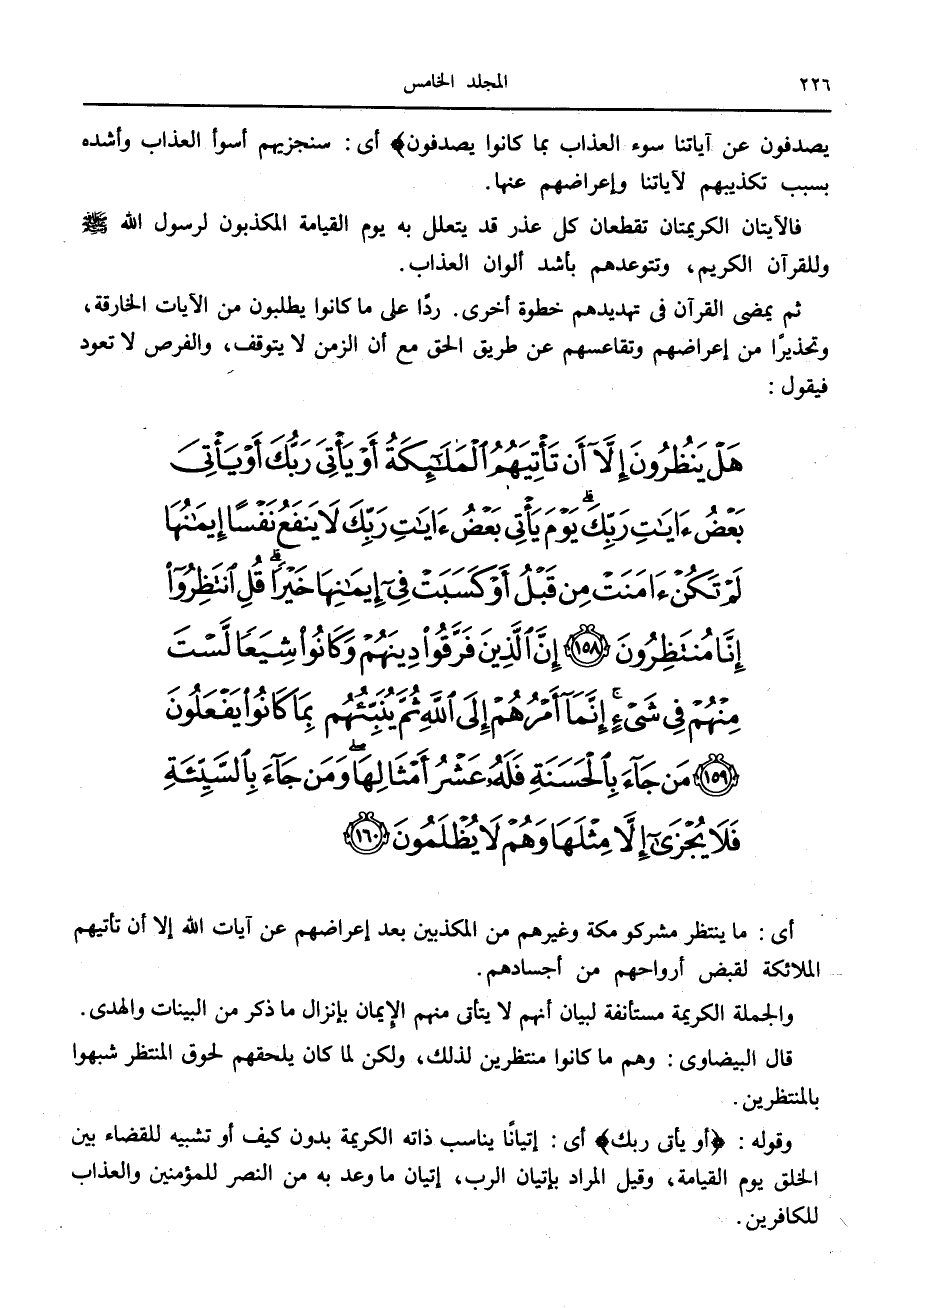 ٢٢٦ المجلد الخامس
يصدفون عن آياتنا سوء العذاب بما كانوا يصدفون﴾ أى : سنجزيهم أسوأ العذاب وأشده
بسبب تكذيبهم لآياتنا وإعراضهم عنها.
فالآيتان الكريمتان تقطعان كل عذر قد يتعلل به يوم القيامة المكذبون لرسول الله ﷺ
وللقرآن الكريم، وتتوعدهم بأشد ألوان العذاب.
ثم يمضى القرآن فى تهديدهم خطوة أخرى. ردًا على ما كانوا يطلبون من الآيات الخارقة،
وتحذيرًا من إعراضهم وتقاعسهم عن طريق الحق مع أن الزمن لا يتوقف، والفرص لا تعود
فيقول :
هَلْ يَنظُرُونَ إِلَّآ أَن تَأْتِيَهُمُ ٱلْمَلَٰٓئِكَةُ أَوْ يَأْتِىَ رَبُّكَ أَوْ يَأْتِىَ
بَعْضُ ءَايَٰتِ رَبِّكَ ۗ يَوْمَ يَأْتِى بَعْضُ ءَايَٰتِ رَبِّكَ لَا يَنفَعُ نَفْسًا إِيمَٰنُهَا
لَمْ تَكُنْ ءَامَنَتْ مِن قَبْلُ أَوْ كَسَبَتْ فِىٓ إِيمَٰنِهَا خَيْرًا ۗ قُلِ ٱنتَظِرُوٓا۟
إِنَّا مُنتَظِرُونَ ١٥٨ إِنَّ ٱلَّذِينَ فَرَّقُوا۟ دِينَهُمْ وَكَانُوا۟ شِيَعًا لَّسْتَ
مِنْهُمْ فِى شَىْءٍ ۚ إِنَّمَآ أَمْرُهُمْ إِلَى ٱللَّهِ ثُمَّ يُنَبِّئُهُم بِمَا كَانُوا۟ يَفْعَلُونَ
١٥٩ مَن جَآءَ بِٱلْحَسَنَةِ فَلَهُۥ عَشْرُ أَمْثَالِهَا ۖ وَمَن جَآءَ بِٱلسَّيِّئَةِ
فَلَا يُجْزَىٰٓ إِلَّا مِثْلَهَا وَهُمْ لَا يُظْلَمُونَ ١٦٠
أى : ما ينتظر مشركو مكة وغيرهم من المكذبين بعد إعراضهم عن آيات الله إلا أن تأتيهم
الملائكة لقبض أرواحهم من أجسادهم.
والجملة الكريمة مستأنفة لبيان أنهم لا يتأتى منهم الإيمان بإنزال ما ذكر من البينات والهدى.
قال البيضاوى : وهم ما كانوا منتظرين لذلك، ولكن لما كان يلحقهم لحوق المنتظر شبهوا
بالمنتظرين.
وقوله : ﴿أو يأتى ربك﴾ أى : إتيانًا يناسب ذاته الكريمة بدون كيف أو تشبيه للقضاء بين
الخلق يوم القيامة، وقيل المراد بإتيان الرب، إتيان ما وعد به من النصر للمؤمنين والعذاب
للكافرين.